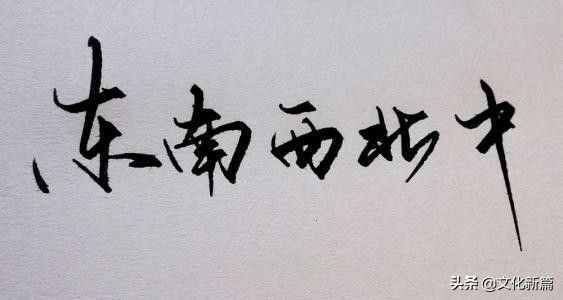 东南西北中
头条 @文化新篇